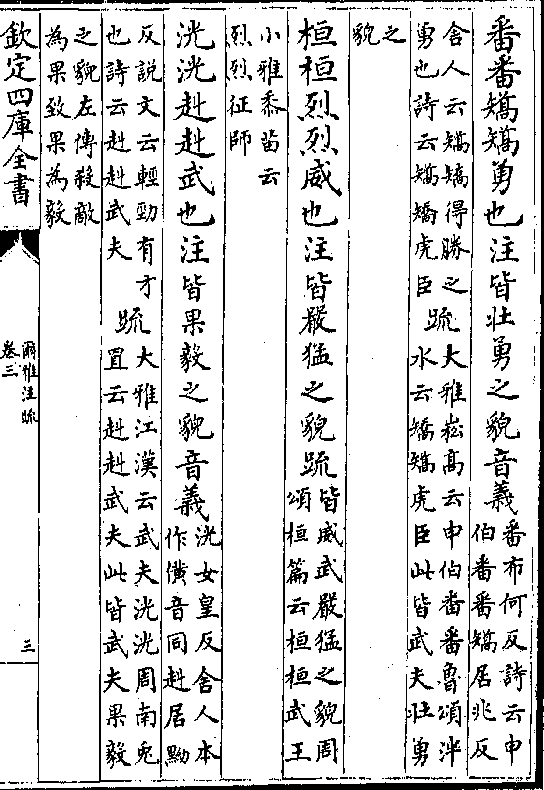 番番矯矯勇也注皆壯勇之貌音義番布何反詩云申伯番番矯居兆反
舍人云矯矯得勝之勇也詩云矯矯虎臣疏大雅崧高云申伯番番魯頌泮水云矯矯虎臣此皆武夫壯勇
之貌
桓桓烈烈威也注皆嚴猛之貌疏皆威武嚴猛之貌周頌桓篇云桓桓武王
小雅黍苗云烈烈征師
洸洸赳赳武也注皆果毅之貌音義洸女皇反舍人本作僙音同赳居黝
反說文云輕勁有才也詩云赳赳武夫疏大雅江漢云武夫洸洸周南兎罝云赳赳武夫此皆武夫果毅
之貌左傳殺敵為果致果為毅
欽定四庫全書
爾雅注疏
卷三
三